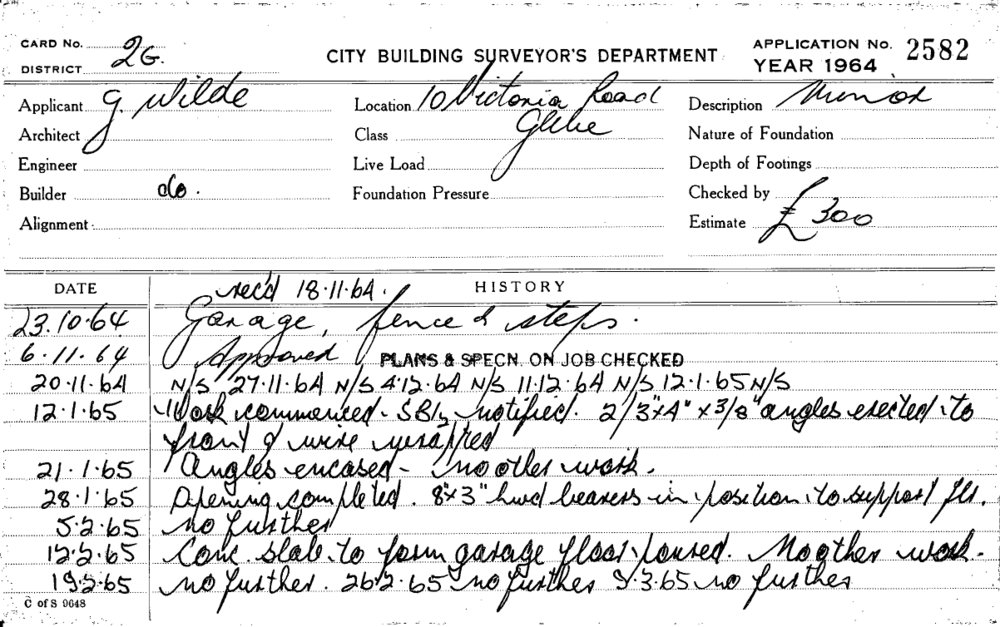 CARD No. 2G. CITY BUILDING SURVEYOR'S DEPARTMENT APPLICATION No. 2582
DISTRICT YEAR 1964
Applicant G. Wilde Location 10 Victoria Road Description Minor
Architect Class Glebe Nature of Foundation
Engineer Live Load Depth of Footings
Builder do. Foundation Pressure Checked by
Alignment Estimate £ 300
DATE rec'd 18.11.64. HISTORY
23.10.64 Garage, fence & steps.
6.11.64 Approved PLANS & SPECN. ON JOB CHECKED
20.11.64 N/S 27.11.64 N/S 4.12.64 N/S 11.12.64 N/S 12.1.65 N/S
12.1.65 Work commenced - notified. 2/3"x4"x3/8" angles erected to
front & wire wrapped
21.1.65 Angles encased - no other work.
28.1.65 Opening completed. 8"x3" hwd bearers in position to support flr.
5.2.65 no further
12.2.65 Conc slab to form garage floor poured. No other work.
19.2.65 no further. 26.2.65 no further 5.3.65 no further
C of S 9648